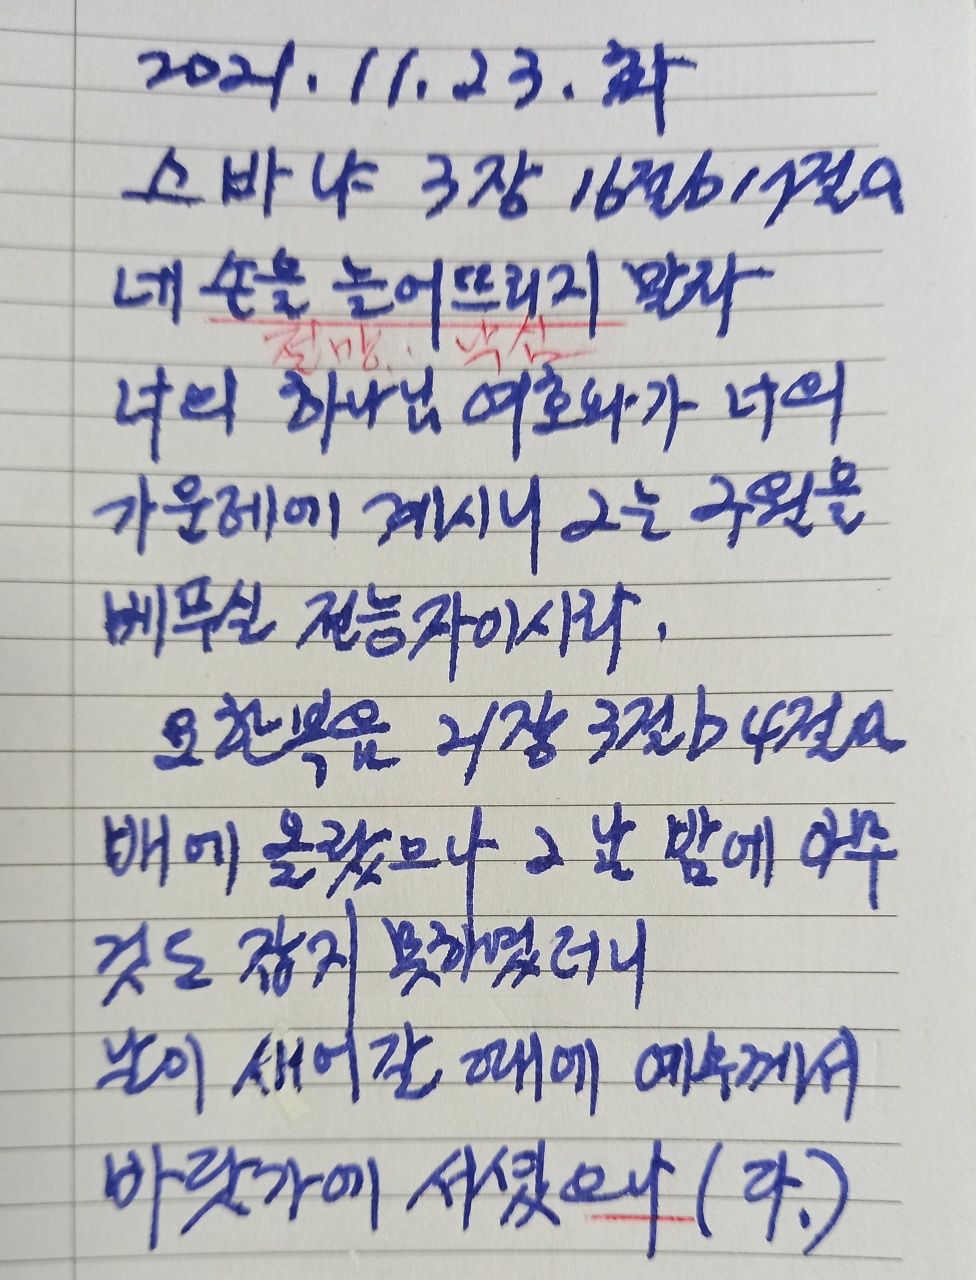 2021. 11. 23. 화
스바냐 3장 16절b 17절a
네 손을 늘어뜨리지 말라
절망. 낙심
너의 하나님 여호와가 너의
가운데에 계시니 그는 구원을
베푸실 전능자이시라.
요한복음 21장 3절b 4절a
배에 올랐으나 그 날 밤에 아무
것도 잡지 못하였더니
날이 새어갈 때에 예수께서
바닷가에 서셨으나 (다.)